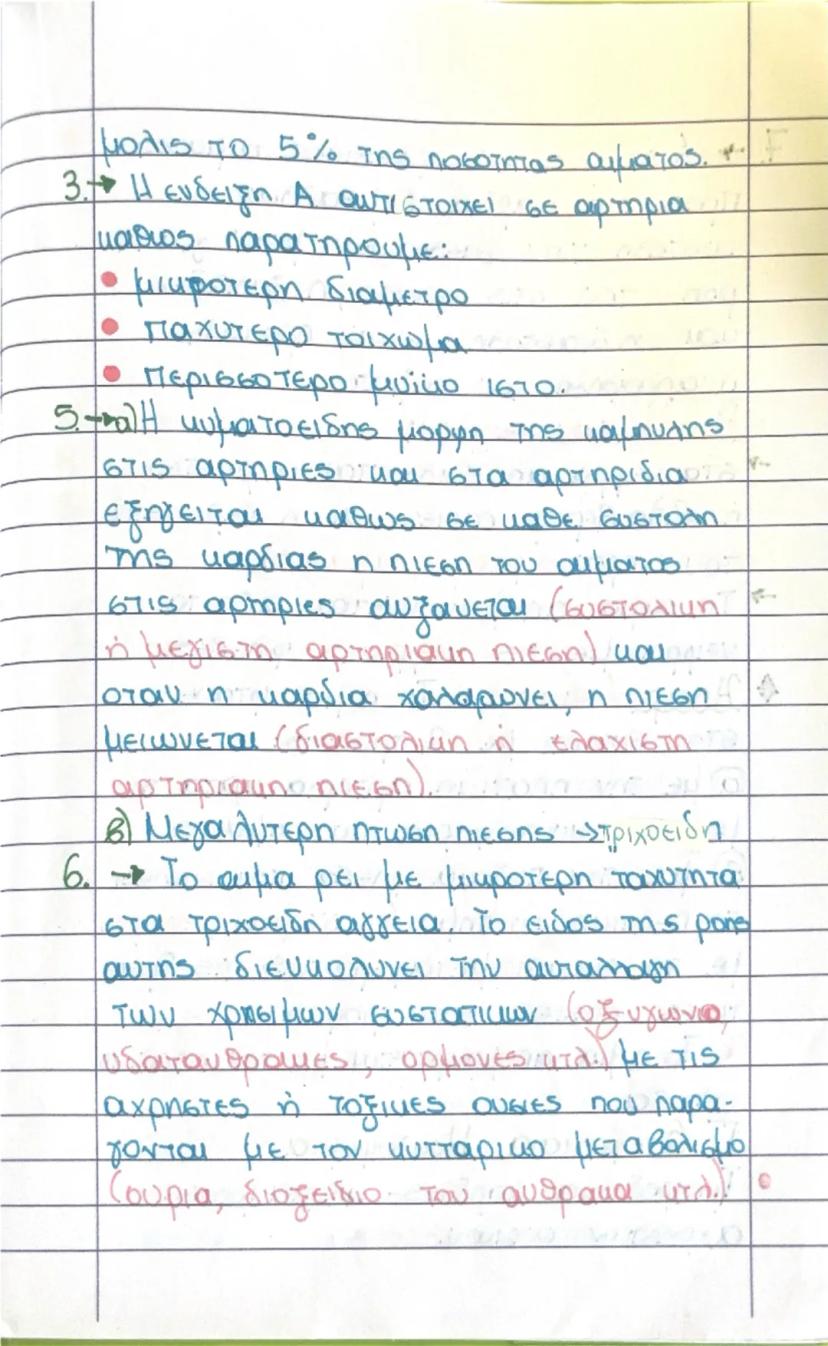 μολις το 5% της ποσοτητας αιματος.
3.→ Η ενδειξη Α αντιστοιχει σε αρτηρια
καθως παρατηρουμε:
• μικροτερη διαμετρο
• παχυτερο τοιχωμα
• περισσοτερο μυϊκο ιστο.
5.→α) Η κυματοειδης μορφη της καμπυλης
στις αρτηριες και στα αρτηριδια
εξηγειται καθως σε καθε συστολη
της καρδιας η πιεση του αιματος
στις αρτηριες αυξανεται (συστολικη
ή μεγιστη αρτηριακη πιεση) και
οταν η καρδια χαλαρωνει, η πιεση
μειωνεται (διαστολικη ή ελαχιστη
αρτηριακη πιεση).
β) Μεγαλυτερη πτωση πιεσης →τριχοειδη
6. → Το αιμα ρει με μικροτερη ταχυτητα
στα τριχοειδη αγγεια. Το ειδος της ροης
αυτης διευκολυνει την ανταλλαγη
των χρησιμων συστατικων (οξυγονο,
υδατανθρακες, ορμονες κτλ.) με τις
αχρηστες ή τοξικες ουσιες που παρα-
γονται με τον κυτταρικο μεταβολισμο
(ουρια, διοξειδιο του ανθρακα κτλ.)